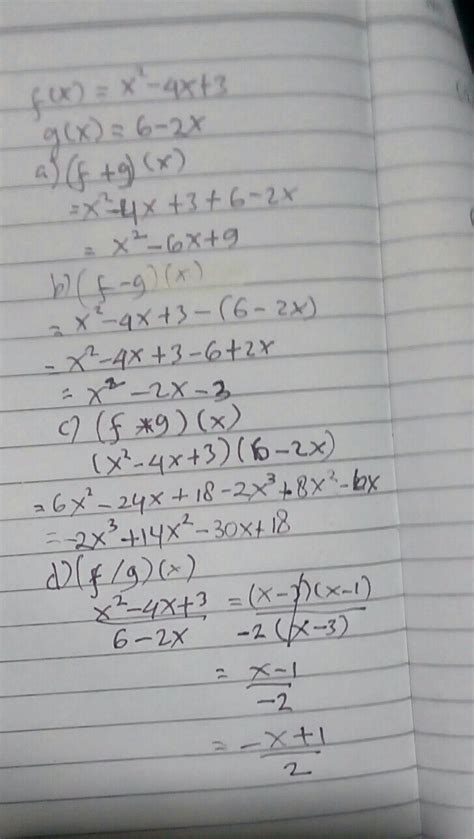 f(x) = x² - 4x + 3
g(x) = 6 - 2x
a) (f + g) (x)
= x² - 4x + 3 + 6 - 2x
= x² - 6x + 9
b) (f - g) (x)
= x² - 4x + 3 - (6 - 2x)
= x² - 4x + 3 - 6 + 2x
= x² - 2x - 3
c) (f * g) (x)
(x² - 4x + 3) (6 - 2x)
= 6x² - 24x + 18 - 2x³ + 8x² - 6x
= -2x³ + 14x² - 30x + 18
d) (f / g) (x)
x² - 4x + 3 / 6 - 2x = (x - 3)(x - 1) / -2 (x - 3)
= x - 1 / -2
= -x + 1 / 2